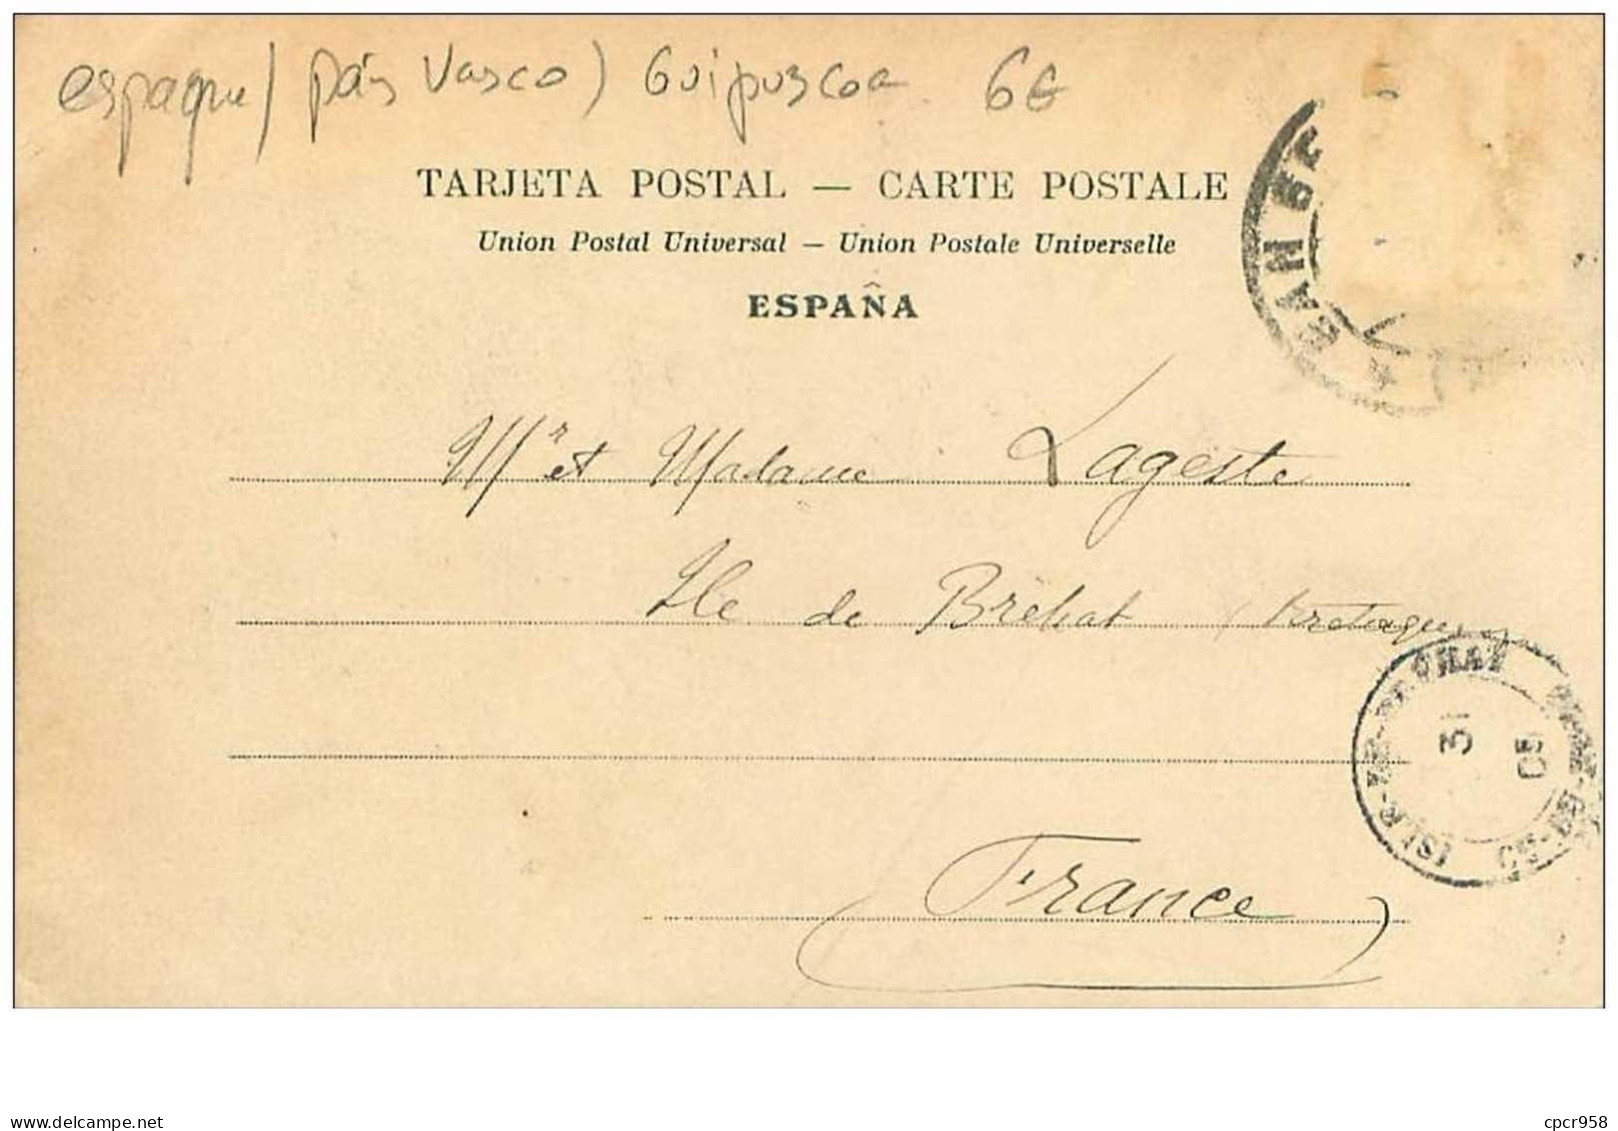 espagne / païs Vasco / Guipuzcoa 6€
TARJETA POSTAL — CARTE POSTALE
Union Postal Universal — Union Postale Universelle
ESPAÑA
Mr et Madame Lageste
Ile de Bréhat (Bretagne)
31
05
France
www.delcampe.net
cpcr958